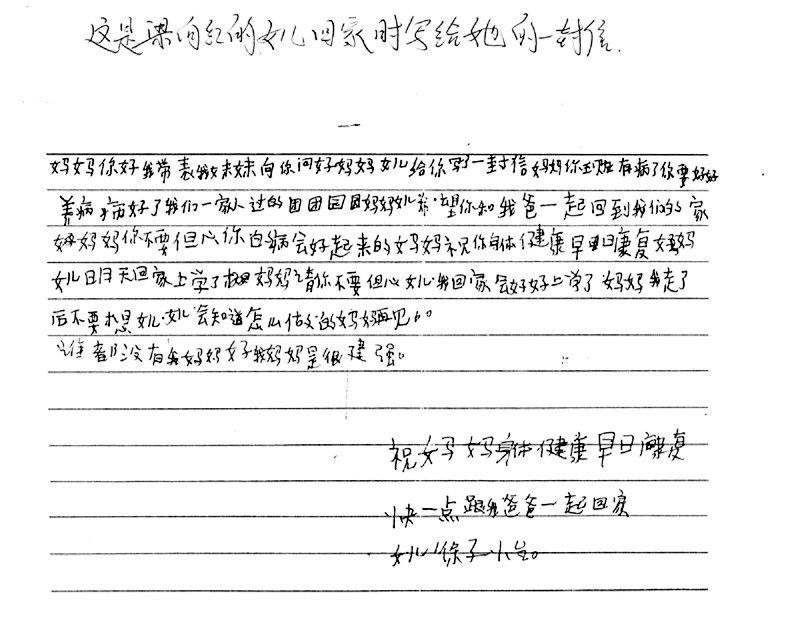 这是梁向红的女儿回家时写给她的一封信.
一
妈妈你好我带表我妹妹向你问好妈妈女儿给你写了一封信妈妈你现在有病了你要好好
养病 病好了我们一家人过的团团园园妈妈女儿希望你和我爸一起回到我们的家
妈妈妈你不要但心你白病会好起来的妈妈祝你身体健康早日康复妈妈
女儿明天回家上学了 妈妈请你不要但心女儿我回家会好好上学了妈妈我走了
后不要想女儿女儿会知道怎么做的妈妈再见。
谁都没有我妈妈好我妈妈是很建强。
祝妈妈身体健康早日康复
快一点跟我爸爸一起回家
女儿 子